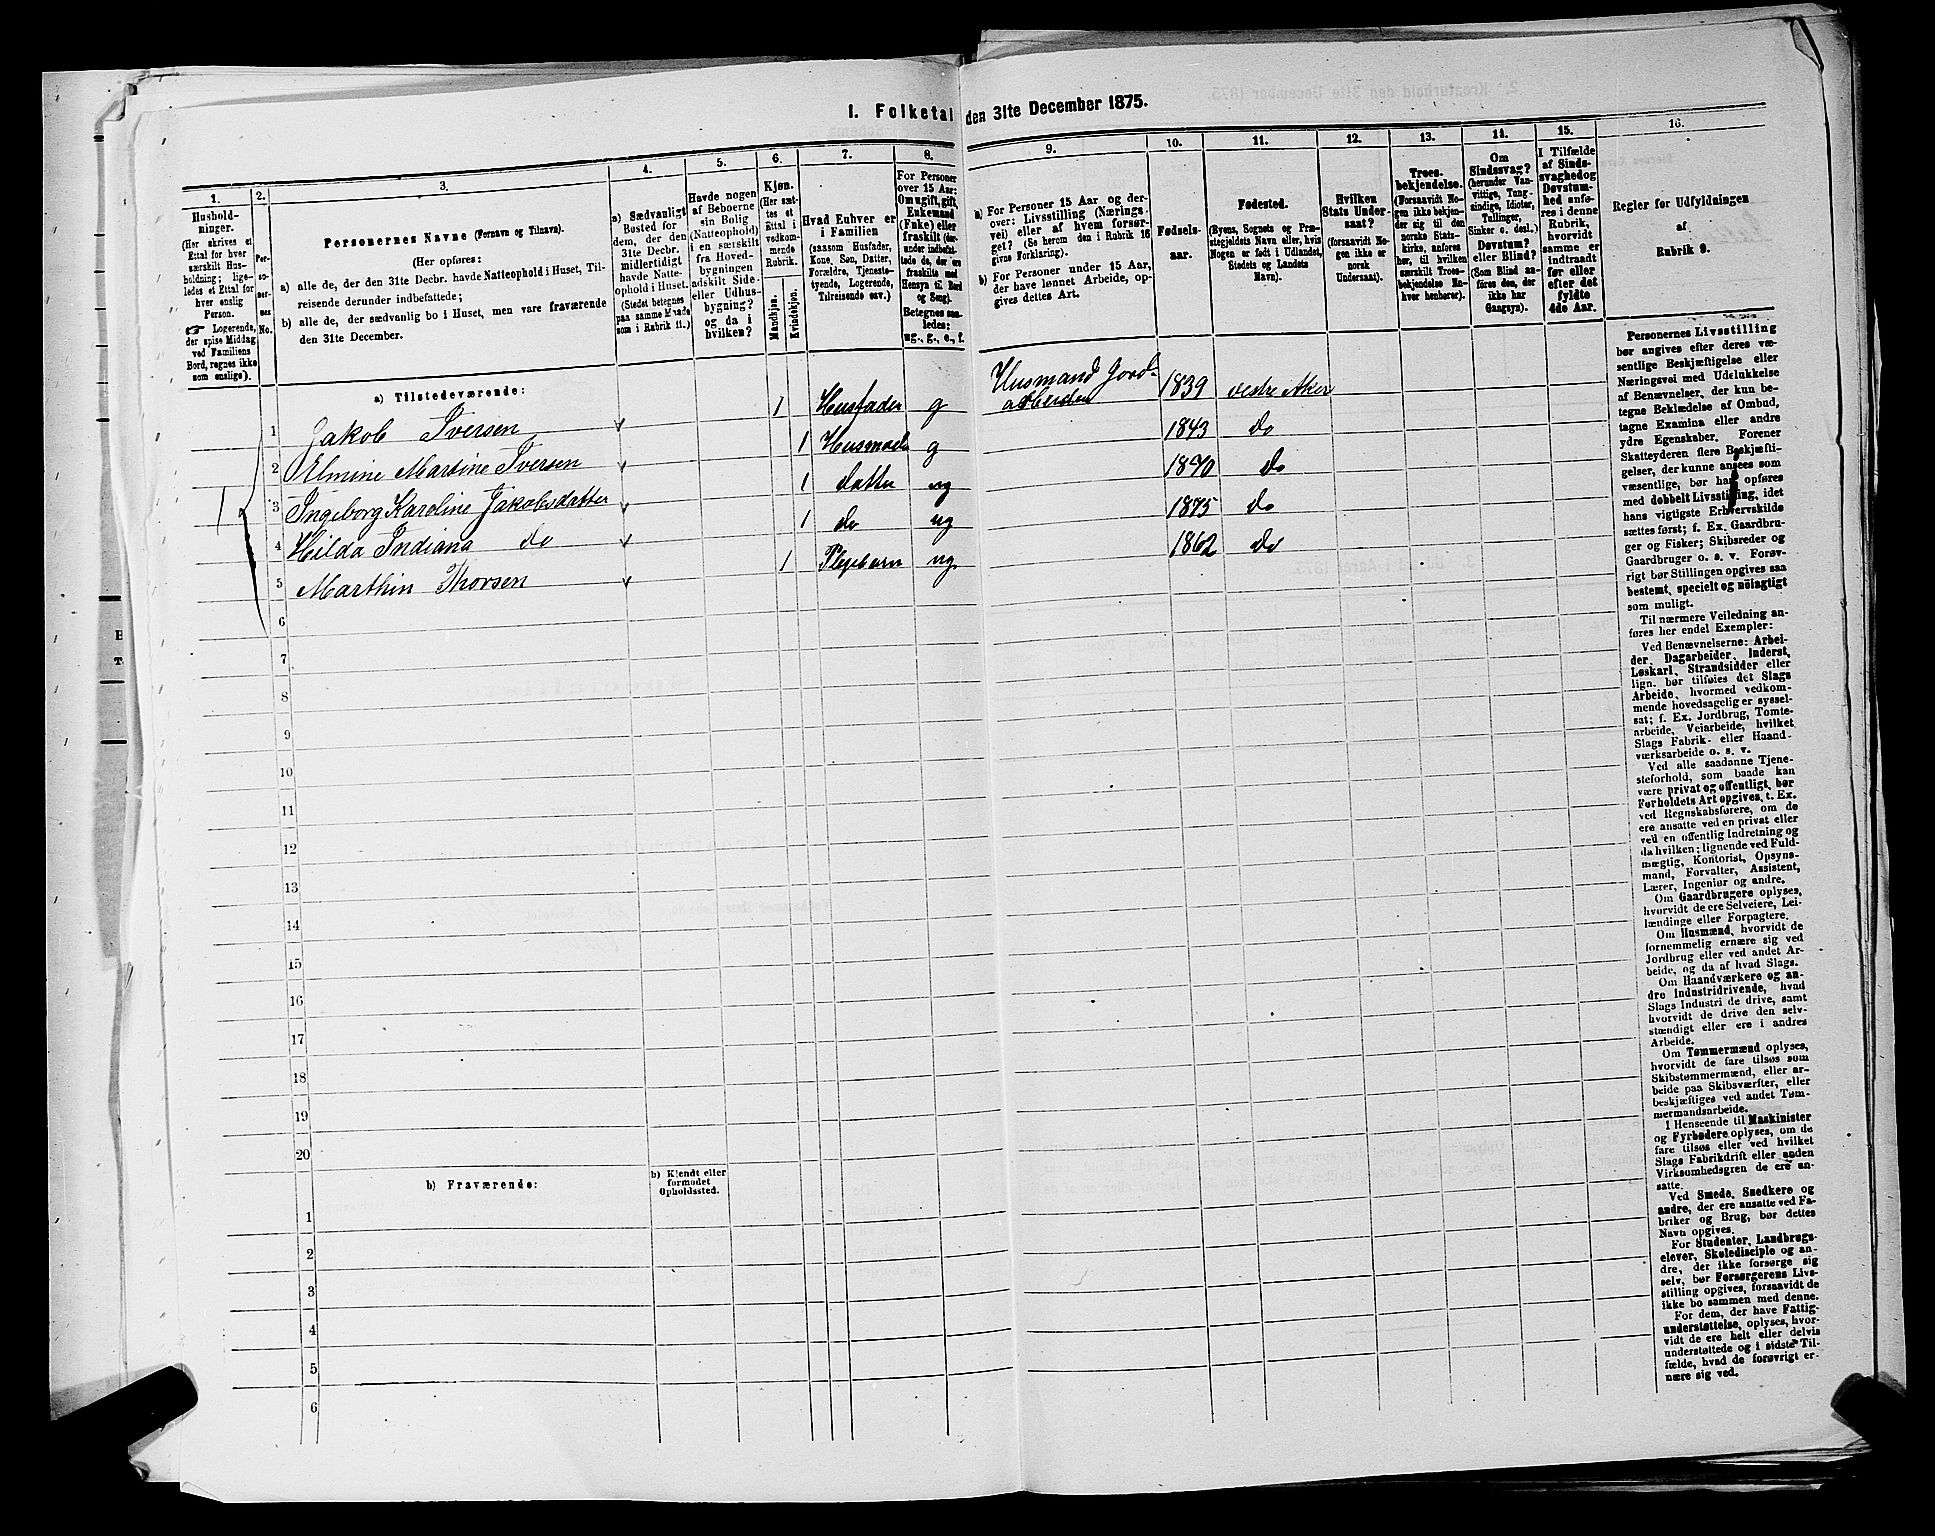 1. Folketal den 31te December 1875.
1.
2.
3.
4.
5.
6.
7.
8.
9.
10.
11.
12.
13.
14.
15.
16.
Husholdninger.
(Her skrives et
Ettal for hver
særskilt Husholdning; ligeledes et Ettal for
hver enslig
Person.
☞ Logerende,
der spise Middag
ved Familiens
Bord, regnes ikke
som enslige).
Personernes No.
Personernes Navne (Fornavn og Tilnavn).
(Her opføres:
a) alle de, der den 31te Decbr. havde Natteophold i Huset, Tilreisende derunder indbefattede;
b) alle de, der sædvanlig bo i Huset, men vare fraværende
den 31te December.
a) Sædvanligt
Bosted for
dem, der den
31te Decbr.
midlertidigt
havde Natteophold i Huset.
(Stedet betegnes
paa samme Maade
som i Rubrik 11.)
Havde nogen
af Beboerne
sin Bolig
(Natteophold)
i en særskilt
fra Hovedbygningen
adskilt Side-
eller Udhusbygning? og da i
hvilken?
Kjøn.
(Her sættes et
Ettal i
vedkommende
Rubrik.
Mandkjøn.
Kvindekjøn.
Hvad Enhver er
i Familien
(saasom Husfader,
Kone, Søn, Datter,
Forældre, Tjenestetyende, Logerende,
Tilreisende osv.)
For Personer
over 15 Aar:
Om ugift, gift,
Enkemand
(Enke) eller
fraskilt
Betegnes saaledes:
ug., g., e., f.
a) For Personer 15 Aar og derover: Livsstilling (Næringsvei) eller af hvem forsørget? (Se herom den i Rubrik 16
givne Forklaring).
b) For Personer under 15 Aar,
der have lønnet Arbeide, opgives dettes Art.
Fødselsaar.
Fødested.
(Byens, Sognets og Præstegjeldets Navn eller, hvis
Nogen er født i Udlandet,
Stedets og Landets
Navn).
Hvilken
Stats Undersaat?
(forsaavidt Nogen ikke er
norsk
Undersaat).
Troesbekjendelse.
(Forsaavidt Nogen ikke bekjender sig til den
norske Statskirke, anføres
her, til hvilken
særskilt Troesbekjendelse Enhver henhører).
Om
Sindssvag?
(herunder Vanvittige, Tungsindige, Idioter,
Tullinger,
Sinker o. desl.)
Døvstum?
eller Blind?
(Som Blind anføres den, der
ikke har
Gangsyn).
I Tilfælde
af Sindssvaghed og
Døvstumhed anføres i denne
Rubrik,
hvorvidt
samme er
indtraadt
før eller
efter det
fyldte
4de Aar.
Regler for Udfyldningen
af
Rubrik 9.
a) Tilstedeværende:
1 Jakob Iversen 1 Husfader g Husmand Jordarbeider 1839 Vestre Aker
2 Elmine Martine Iversen 1 Husmoder g 1843 do
3 Ingeborg Karoline Jakobsdatter 1 datter ug 1870 do
4 Hilda Indiana do 1 do ug 1875 do
5 Marthin Thorsen 1 Plejebarn ug 1862 do
6
7
8
9
10
11
12
13
14
15
16
17
18
19
20
b) Fraværende:
b) Kjendt eller
formodet
Opholdssted.
1
2
3
4
5
6
Personernes Livsstilling
bør angives efter deres væsentlige Beskjæftigelse eller
Næringsvei med Udelukkelse
af Benævnelser, der kun betegne Beklædelse af Ombud,
tagne Examina eller andre
ydre Egenskaber. Forener
Skatteyderen flere Beskjæftigelser, der kunne ansees som
væsentlige, bør han opføres
med dobbelt Livsstilling, idet
hans vigtigste Erhvervskilde
sættes først; f. Ex. Gaardbruger og Fisker; Skibsreder og
Gaardbruger o. s. v. Forøvrigt bør Stillingen opgives saa
bestemt, specielt og nøiagtigt
som muligt.
Til nærmere Veiledning anføres her endel Exempler:
Ved Benævnelserne: Arbeider, Dagarbeider, Inderst,
Løskarl, Strandsidder eller
lign. bør tilføies det Slags
Arbeide, hvormed vedkommende hovedsagelig er sysselsat; f. Ex. Jordbrug, Tomtearbeide, Veiarbeide, hvilket
Slags Fabrik- eller Haandværksarbeide o. s. v.
Ved alle saadanne Tjenesteforhold, som baade kan
være privat og offentligt, bør
Forholdets Art opgives, t. Ex.
ved Regnskabsførere, om de
ere ansatte ved en privat eller
ved en offentlig Indretning og
da hvilken; lignende ved Fuldmægtig, Kontorist, Opsynsmand, Forvalter, Assistent,
Lærer, Ingeniør og andre.
Om Gaardbrugere oplyses,
hvorvidt de ere Selveiere, Leilændinge eller Forpagtere.
Om Husmænd, hvorvidt de
fornemmelig ernære sig ved
Jordbrug eller ved andet Arbeide, og da af hvad Slags.
Om Haandværkere og andre Industridrivende, hvad
Slags Industri de drive, samt
hvorvidt de drive den selvstændigt eller ere i andres
Arbeide.
Om Tømmermænd oplyses,
hvorvidt de fare tilsøs som
Skibstømmermænd, eller arbeide paa Skibsværfter, eller
beskjæftiges ved andet Tømmermandsarbeide.
I Henseende til Maskinister
og Fyrbødere oplyses, om de
fare tilsøs eller ved hvilket
Slags Fabrikdrift eller anden
Virksomhedsgren de ere ansatte.
Ved Smede, Snedkere og
andre, der ere ansatte ved Fabriker og Brug, bør dettes
Navn opgives.
For Studenter, Landbrugselever, Skoledisciple og andre, der ikke forsørge sig
selv, bør Forsørgerens Livsstilling opgives, forsaavidt de
ikke bo sammen med denne.
For dem, der have Fattigunderstøttelse, oplyses, hvorvidt de ere helt eller delvis
understøttede og i sidste Tilfælde, hvad de forøvrigt ernære sig ved.